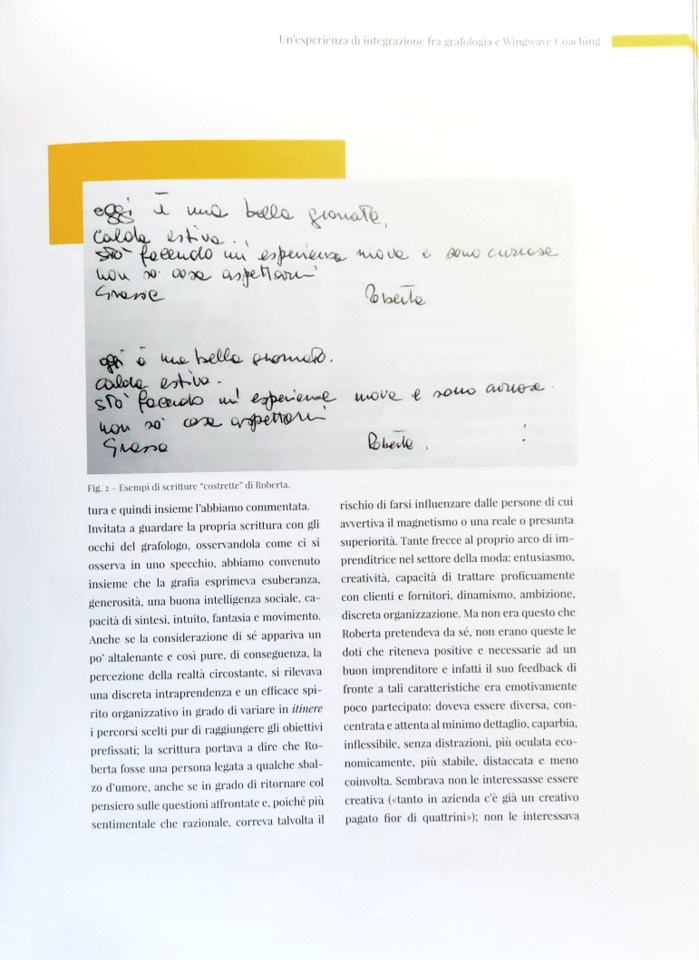 Un'esperienza di integrazione fra grafologia e Wingwave Coaching
oggi è una bella giornata,
calda estiva.
sto' facendo un'esperienza nuova e sono curiosa
non so cosa aspettarmi
Grasse
Roberta
oggi è una bella giornata.
calda estiva.
sto' facendo un'esperienza nuova e sono curiosa.
non so' cosa aspettarmi
Roberta.
Fig. 2 – Esempi di scritture “costrette” di Roberta.
tura e quindi insieme l'abbiamo commentata.
Invitata a guardare la propria scrittura con gli
occhi del grafologo, osservandola come ci si
osserva in uno specchio, abbiamo convenuto
insieme che la grafia esprimeva esuberanza,
generosità, una buona intelligenza sociale, ca-
pacità di sintesi, intuito, fantasia e movimento.
Anche se la considerazione di sé appariva un
po' altalenante e così pure, di conseguenza, la
percezione della realtà circostante, si rilevava
una discreta intraprendenza e un efficace spi-
rito organizzativo in grado di variare in itinere
i percorsi scelti pur di raggiungere gli obiettivi
prefissati; la scrittura portava a dire che Ro-
berta fosse una persona legata a qualche sbal-
zo d'umore, anche se in grado di ritornare col
pensiero sulle questioni affrontate e, poiché più
sentimentale che razionale, correva talvolta il
rischio di farsi influenzare dalle persone di cui
avvertiva il magnetismo o una reale o presunta
superiorità. Tante frecce al proprio arco di im-
prenditrice nel settore della moda: entusiasmo,
creatività, capacità di trattare proficuamente
con clienti e fornitori, dinamismo, ambizione,
discreta organizzazione. Ma non era questo che
Roberta pretendeva da sé, non erano queste le
doti che riteneva positive e necessarie ad un
buon imprenditore e infatti il suo feedback di
fronte a tali caratteristiche era emotivamente
poco partecipato: doveva essere diversa, con-
centrata e attenta al minimo dettaglio, caparbia,
inflessibile, senza distrazioni, più oculata eco-
nomicamente, più stabile, distaccata e meno
coinvolta. Sembrava non le interessasse essere
creativa («tanto in azienda c'è già un creativo
pagato fior di quattrini»); non le interessava